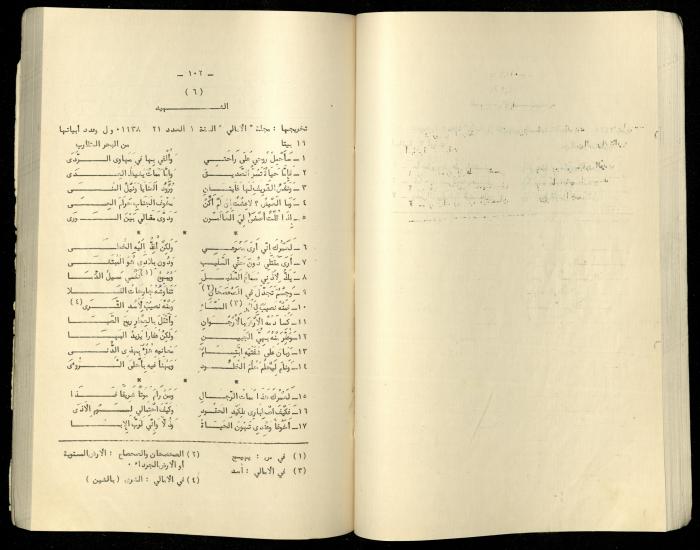 – ١٠٢ –
( ٦ )
الشهيد
تخريجها : مجلة " الأمالي " السنة ١ العدد ٢١ ١٩٣٨ وعدد أبياتها
١٦ بيتا من البحر المتقارب
١ – سأحمل روحي على راحتي وألقي بها في مهاوي الردى
٢ – فإما حياة تسر الصديق وإما ممات يغيظ العدى
٣ – ونفس الشريف لها غايتان ورود المنايا ونيل المنى
٤ – وما العيش ؟ لا عشت إن لم أكن مخوف الجناب حرام الحمى
٥ – إذا قلت أصغى لي العالمون ودوى مقالي بين الورى
* * *
٦ – لعمرك إني أرى مصرعي ولكن أغذ إليه الخطى
٧ – أرى مقتلي دون حقي السليب ودون بلادي هو المبتغى
٨ – يلذ لأذني سماع الصليل ويبهج (١) نفسي مسيل الدما
٩ – وجسم تجدل في الصحصحان (٢) تناوشه جارحات الفلا
١٠ – فمنه نصيب السماء (٣) ومنه نصيب لأسد الشرى (٤)
١١ – كسا دمه الأرض بالأرجوان وأثقل بالعطر ريح الصبا
١٢ – وعفر منه بهي الجبين ولكن عفارا يزيد البها
١٣ – وبان على شفتيه ابتسام معانيه هزء بهذي الدنى
١٤ – ونام ليحلم حلم الخلود ويهنأ فيه بأحلى الرؤى
* * *
١٥ – لعمرك هذا ممات الرجال ومن رام موتا شريفا فذا
١٦ – فكيف اصطباري لكيد الحقود وكيف احتمالي لسوم الأذى
١٧ – أخوفا وعندي تهون الحياة وذلا وإني لرب الإبا
(١) في س : يهيج
(٢) الصحصحان والصحصاح : الأرض المستوية
أو الأرض الجرداء .
(٣) في الأمالي : أسد
(٤) في الأمالي : الشرى ( بالشين )